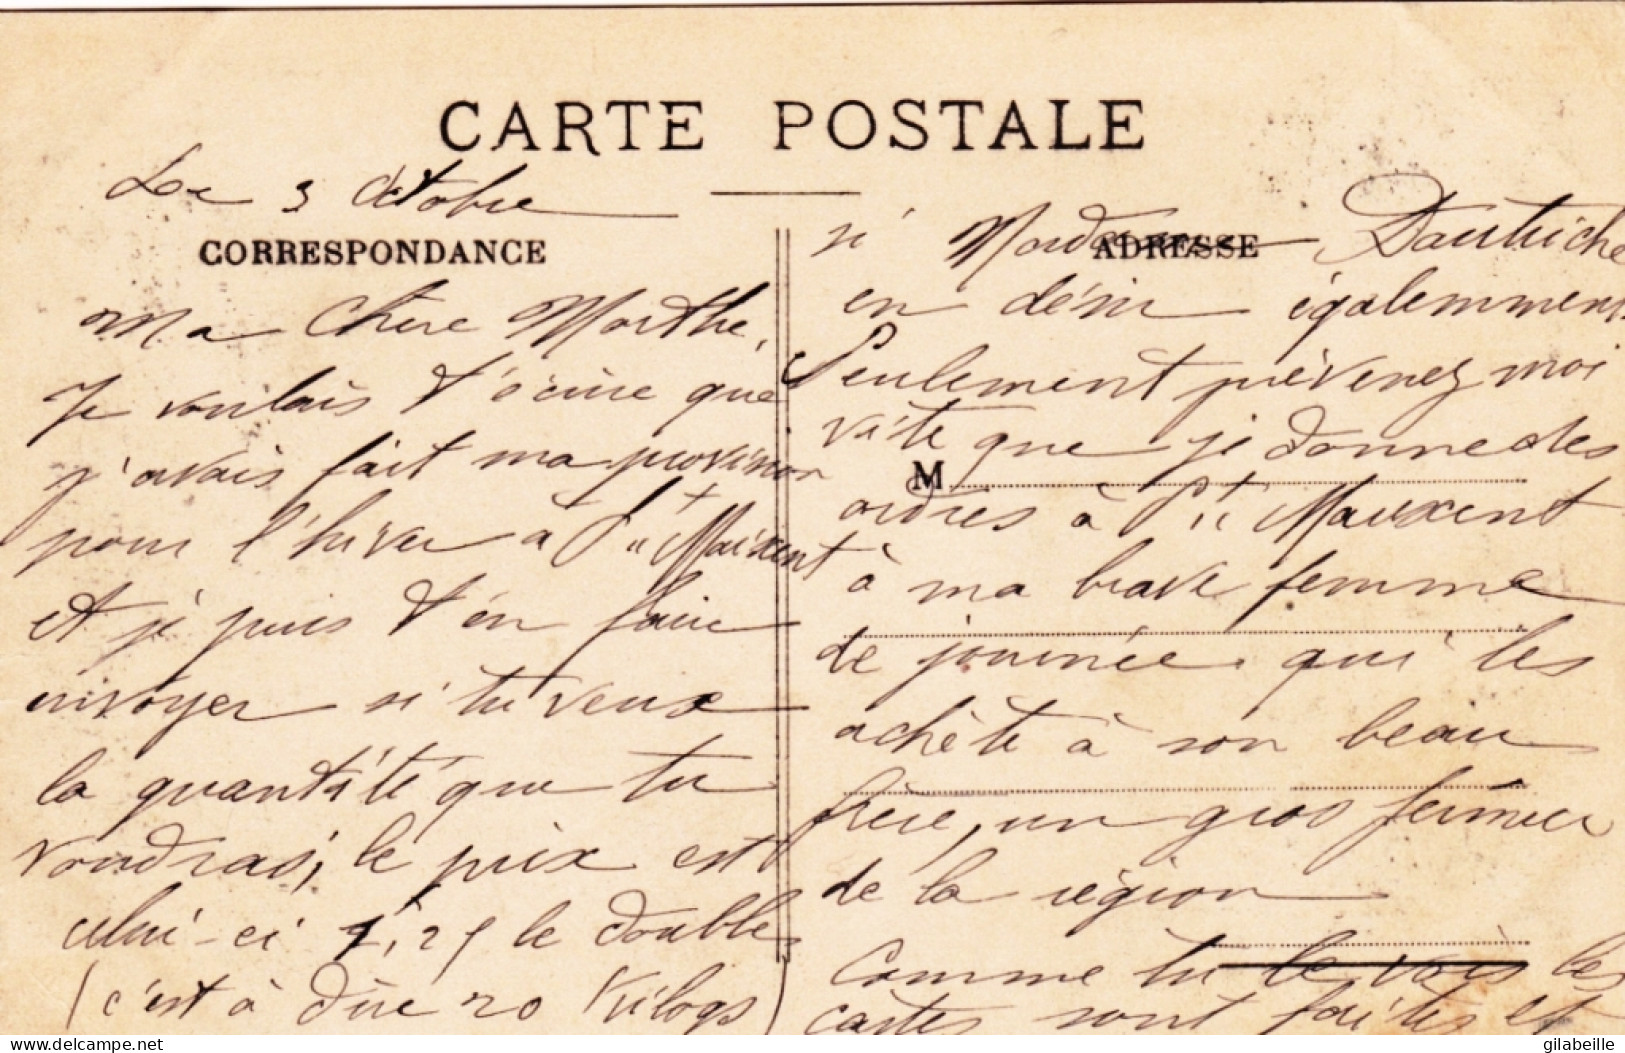 CARTE POSTALE
Le 3 Octobre
CORRESPONDANCE
Ma Chère Marthe,
Je voulais t'écrire que
j'avais fait ma provision
pour l'hiver à St Maixent
et je puis t'en faire
envoyer si tu veux
la quantité que tu
voudras, le prix est
celui-ci 1,25 le double
(c'est à dire 20 Kilogs)
ADRESSE
si Madame Dautriche
en désire égalemment
Seulement prévenez moi
vite que je donne des
M
ordres à St Maixent
à ma brave femme
de journée qui les
achète à son beau
frère, un gros fermier
de la région
Comme tu le vois les
cartes sont faites et
delcampe.net
gilabeille